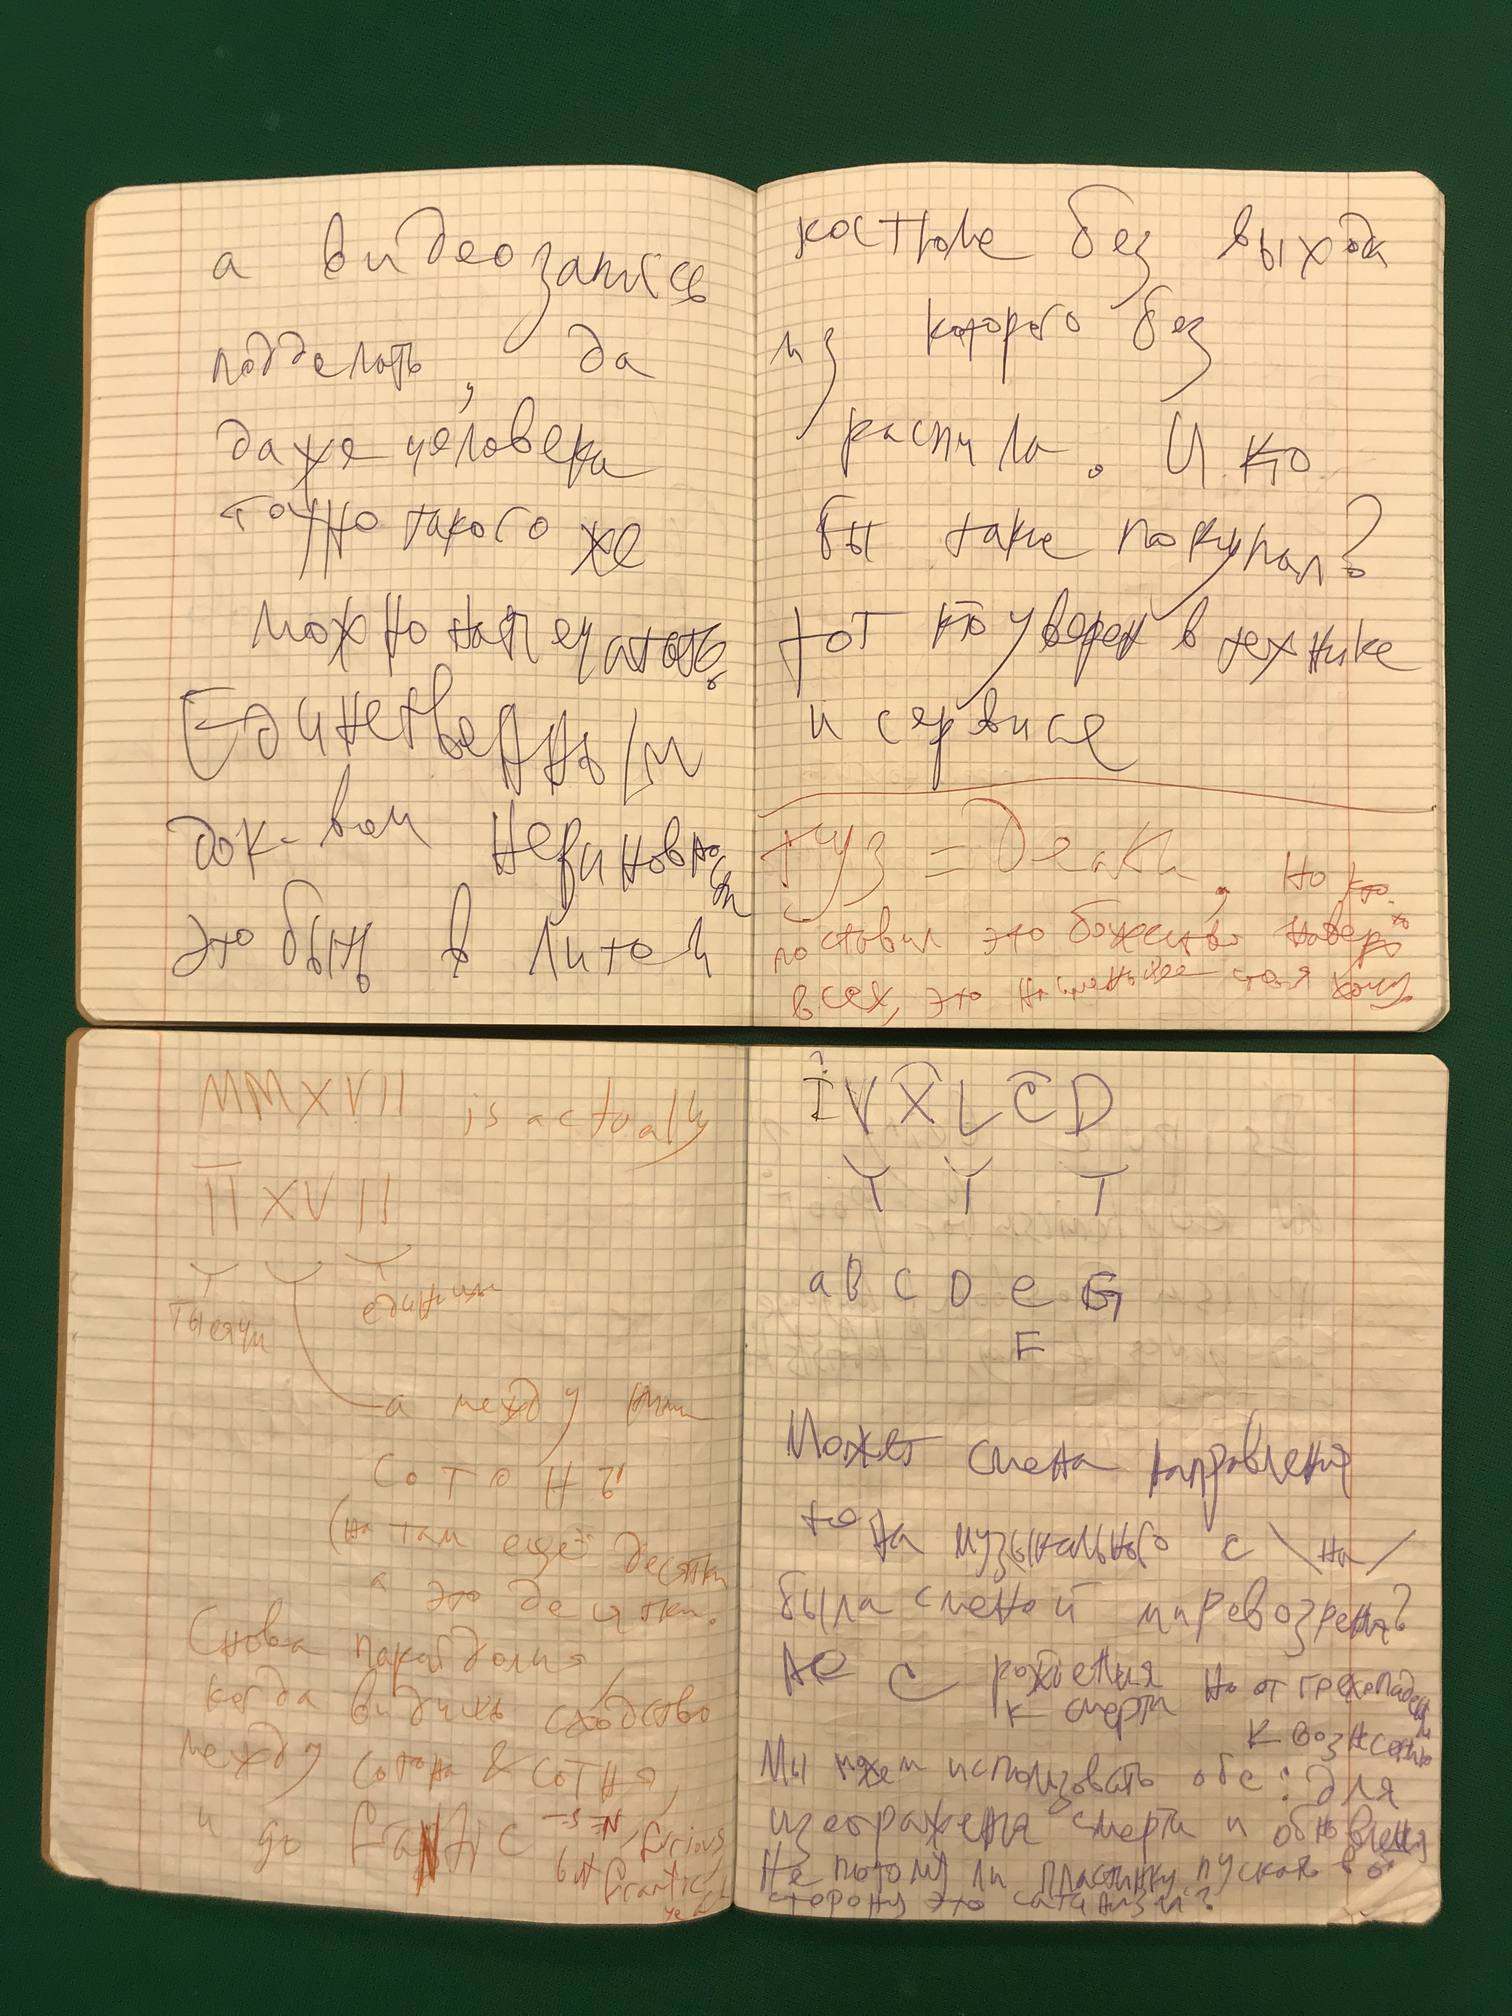 а видеозапись
подделать, да
даже человека
точно такого же
можно напечатать.
Единственным
док-вом невиновности
это быть в литом
костюме без выхода
из которого без
распила. И кто
бы такие покупал?
Тот кто уверен в технике
и сервисе
туз = Deакн, но кто
поставил это божество наверх
всех, это
MMXVII is actually
II XVII
тысячи
единицы
а между ними
сотоны
(на там ещё десятки
а это десятки.
Снова
когда видишь сходство
между сотона & сотня,
и до frantic
furious
but frantic,
yeah
IVXLCD
a b c D e G
F
Может смена направления
тона музыкального с \ на /
была сменой мировозрения?
не с рождения
к смерти но от грехопадения
к вознесению
Мы можем использовать обе: для
изображения смерти и обновления
Не потому ли пластинку пускать в об
сторону это сатанизм?